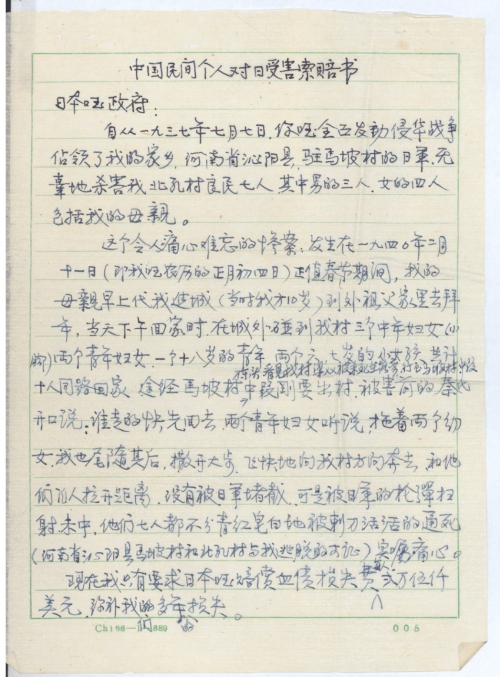 中国民间个人对日受害索赔书
日本国政府:
自从一九三七年七月七日,你国全面发动侵华战争
佔领了我的家乡,河南省沁阳县,驻马坡村的日军无
辜地杀害我北孔村良民七人 其中男的三人,女的四人
包括我的母亲。
这个令人痛心难忘的惨案,发生在一九四〇年二月
十一日(即我国农历的正月初四日)正值春节期间,我的
母亲早上代我进城(当时我才10岁)到外祖父家里去拜
年,当天下午回家时,在城外碰到我村三个中年妇女(小
脚)两个青年妇女.一个十八岁的青年,两个六、七岁的小女孩,共计
十人同路回家.途经马坡村中 刚要出村,被害前的秦
开口说:谁走的快先回去,两个青年妇女听说,拖着两个幼
女,我也尾随其后,撒开大步,飞快地向我村方向奔去,和他
们几人拉开距离,没有被日军堵截,可是被日军的枪弹扫
射未中,他们七人都不分青红皂白地被刺刀活活的通死
(河南省沁阳县马坡村和北孔村与我逃脱的可证)实属痛心。
现在我只有要求日本国赔偿血债损失费 万伍仟
美元,弥补我们的多年损失。
Ch186—(1)889 006